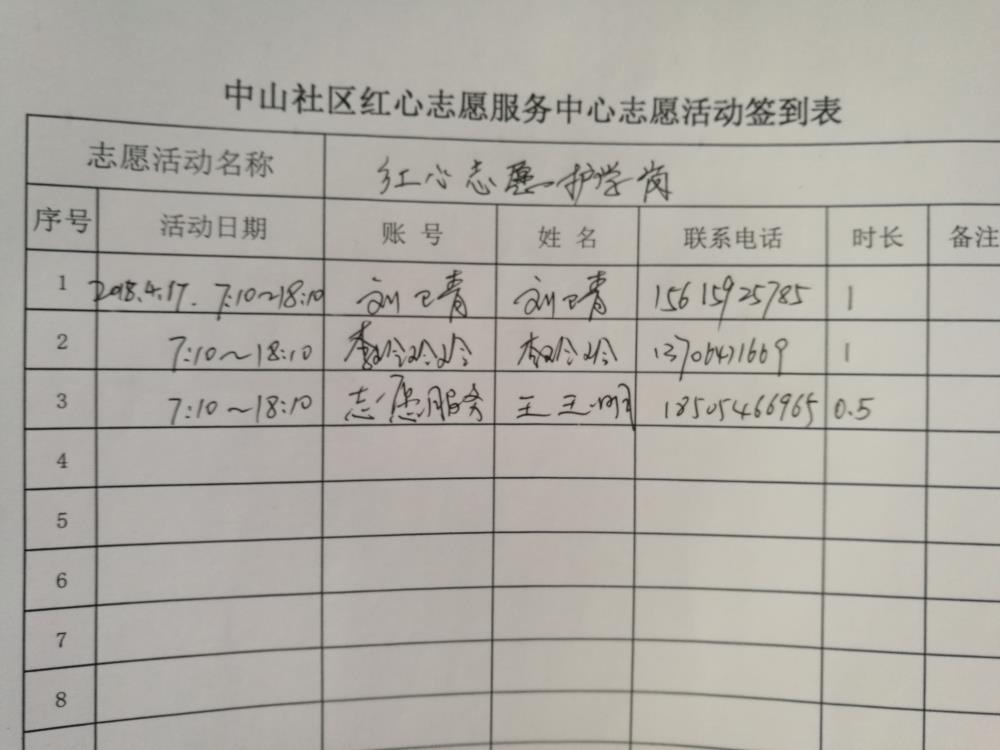 中山社区红心志愿服务中心志愿活动签到表
志愿活动名称 红心志愿—护学岗
序号 活动日期 账号 姓名 联系电话 时长 备注
1 2018.4.17. 7:10~18:10 刘卫青 刘卫青 15615925785 1
2 7:10~18:10 李玲玲 李玲玲 13706421669 1
3 7:10~18:10 志愿服务 王玉明 18505466965 0.5
4
5
6
7
8